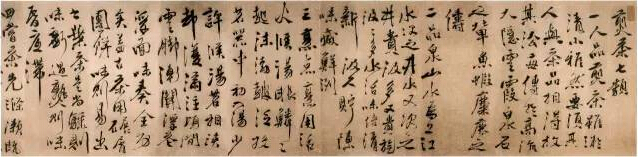 煎茶七類
一人品煎茶雖微
清小雅然要須其
人與茶品相得故
其法每傳於高流
大隱雲霞泉石
之輩魚蝦麋鹿之
儔
二品泉山水為上江
水次之井水又次之
井貴汲多又貴旋
汲汲多水活味倍清
新汲久貯陳
味減鮮冽
三烹點烹用活
火候湯眼鱗鱗
起沫浡鼓泛投
茗器中初入湯少
許候湯茗相浹
却復滿注頃間
雲腳漸開浮花
浮面味奏全功
矣蓋古茶用碾屑
團餅味則易出
葉茶是尚驟則
味虧過熟則味
昏底滯
四嘗茶先滌漱既